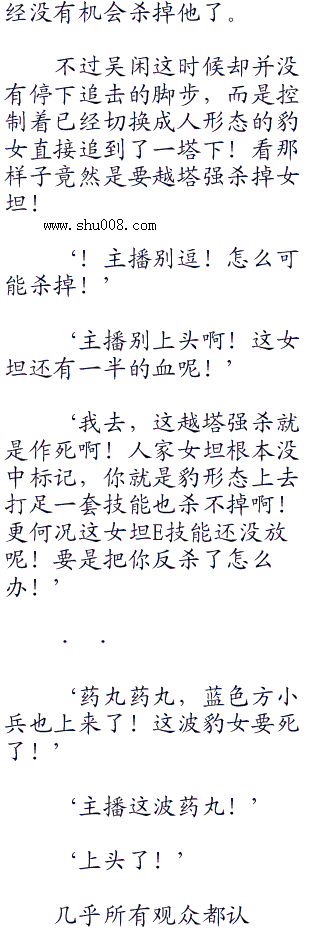 经没有机会杀掉他了。
不过吴闲这时候却并没
有停下追击的脚步，而是控
制着已经切换成人形态的豹
女直接追到了一塔下！看那
样子竟然是要越塔强杀掉女
坦！
www.shu008.com
‘！主播别逗！怎么可
能杀掉！’
‘主播别上头啊！这女
坦还有一半的血呢！’
‘我去，这越塔强杀就
是作死啊！人家女坦根本没
中标记，你就是豹形态上去
打足一套技能也杀不掉啊！
更何况这女坦E技能还没放
呢！要是把你反杀了怎么
办！’
．．
‘药丸药丸，蓝色方小
兵也上来了！这波豹女要死
了！’
‘主播这波药丸！’
‘上头了！’
几乎所有观众都认